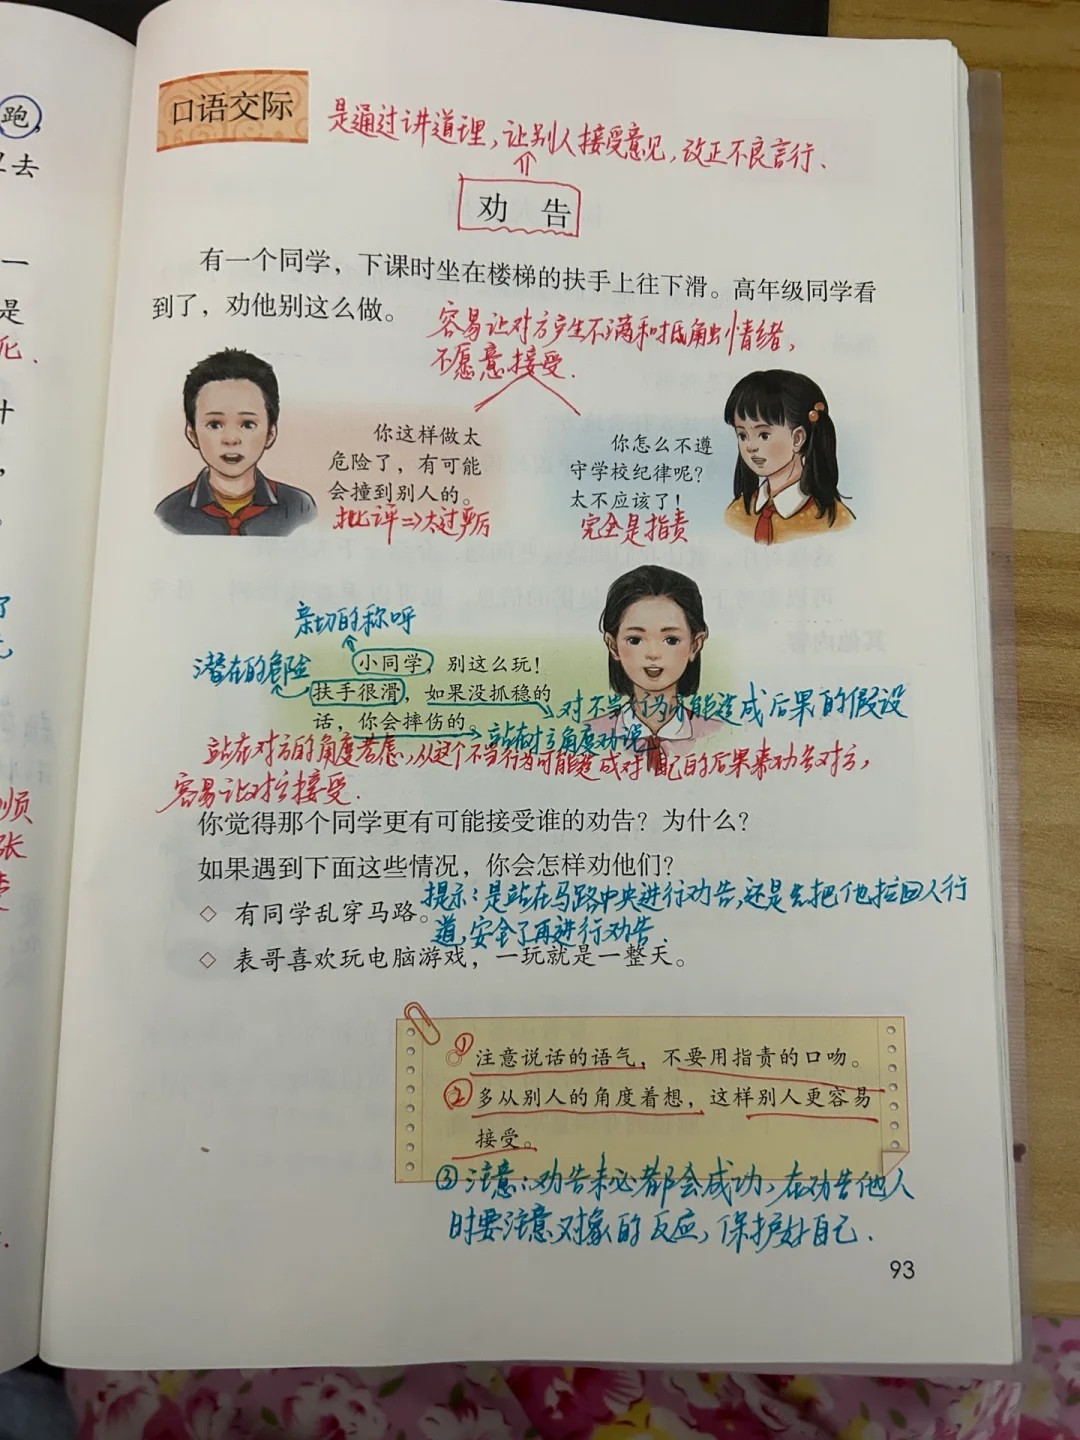 跑，
去
一
是
化.
什
，
。
了
顺
张
口语交际
是通过讲道理，让别人接受意见，改正不良言行.
劝 告
有一个同学，下课时坐在楼梯的扶手上往下滑。高年级同学看
到了，劝他别这么做。
容易让对方产生不满和抵触情绪，
不愿意接受.
你这样做太
危险了，有可能
会撞到别人的。
批评⇒太过严厉
你怎么不遵
守学校纪律呢？
太不应该了！
完全是指责
亲切的称呼
潜在的危险
小同学，别这么玩！
扶手很滑，如果没抓稳的
话，你会摔伤的。
对不当行为可能造成后果的假设
站在对方角度劝说
站在对方的角度考虑，从这个不当行为可能造成对自己的后果来劝告对方，
容易让对方接受.
你觉得那个同学更有可能接受谁的劝告？为什么？
如果遇到下面这些情况，你会怎样劝他们？
◇ 有同学乱穿马路。
提示：是站在马路中央进行劝告，还是先把他拉回人行
道，安全了再进行劝告.
◇ 表哥喜欢玩电脑游戏，一玩就是一整天。
① 注意说话的语气，不要用指责的口吻。
② 多从别人的角度着想，这样别人更容易
接受。
③注意：劝告未必都会成功，在劝告他人
时要注意对象的反应，保护好自己.
93